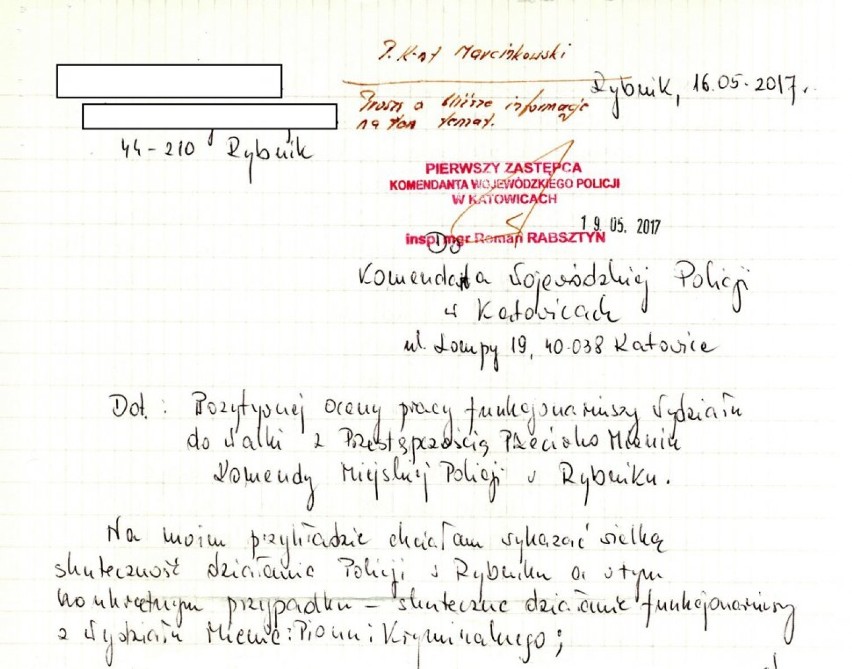 P. K-nt Marcinkowski
Rybnik, 16.05.2017r.
Proszę o bliższe informacje
na ten temat.
44-210 Rybnik
PIERWSZY ZASTĘPCA
KOMENDANTA WOJEWÓDZKIEGO POLICJI
W KATOWICACH
19. 05. 2017
insp. mgr Roman RABSZTYN
Do
Komendanta Wojewódzkiej Policji
w Katowicach
ul. Lompy 19, 40-038 Katowice
Dot. : Pozytywnej oceny pracy funkcjonariuszy Wydziału
do Walki z Przestępczością Przeciwko Mieniu
Komendy Miejskiej Policji w Rybniku.
Na moim przykładzie chciałam wykazać wielką
skuteczność działania Policji w Rybniku a w tym
konkretnym przypadku – skuteczne działanie funkcjonariuszy
z Wydziału Mienia i Pionu Kryminalnego;